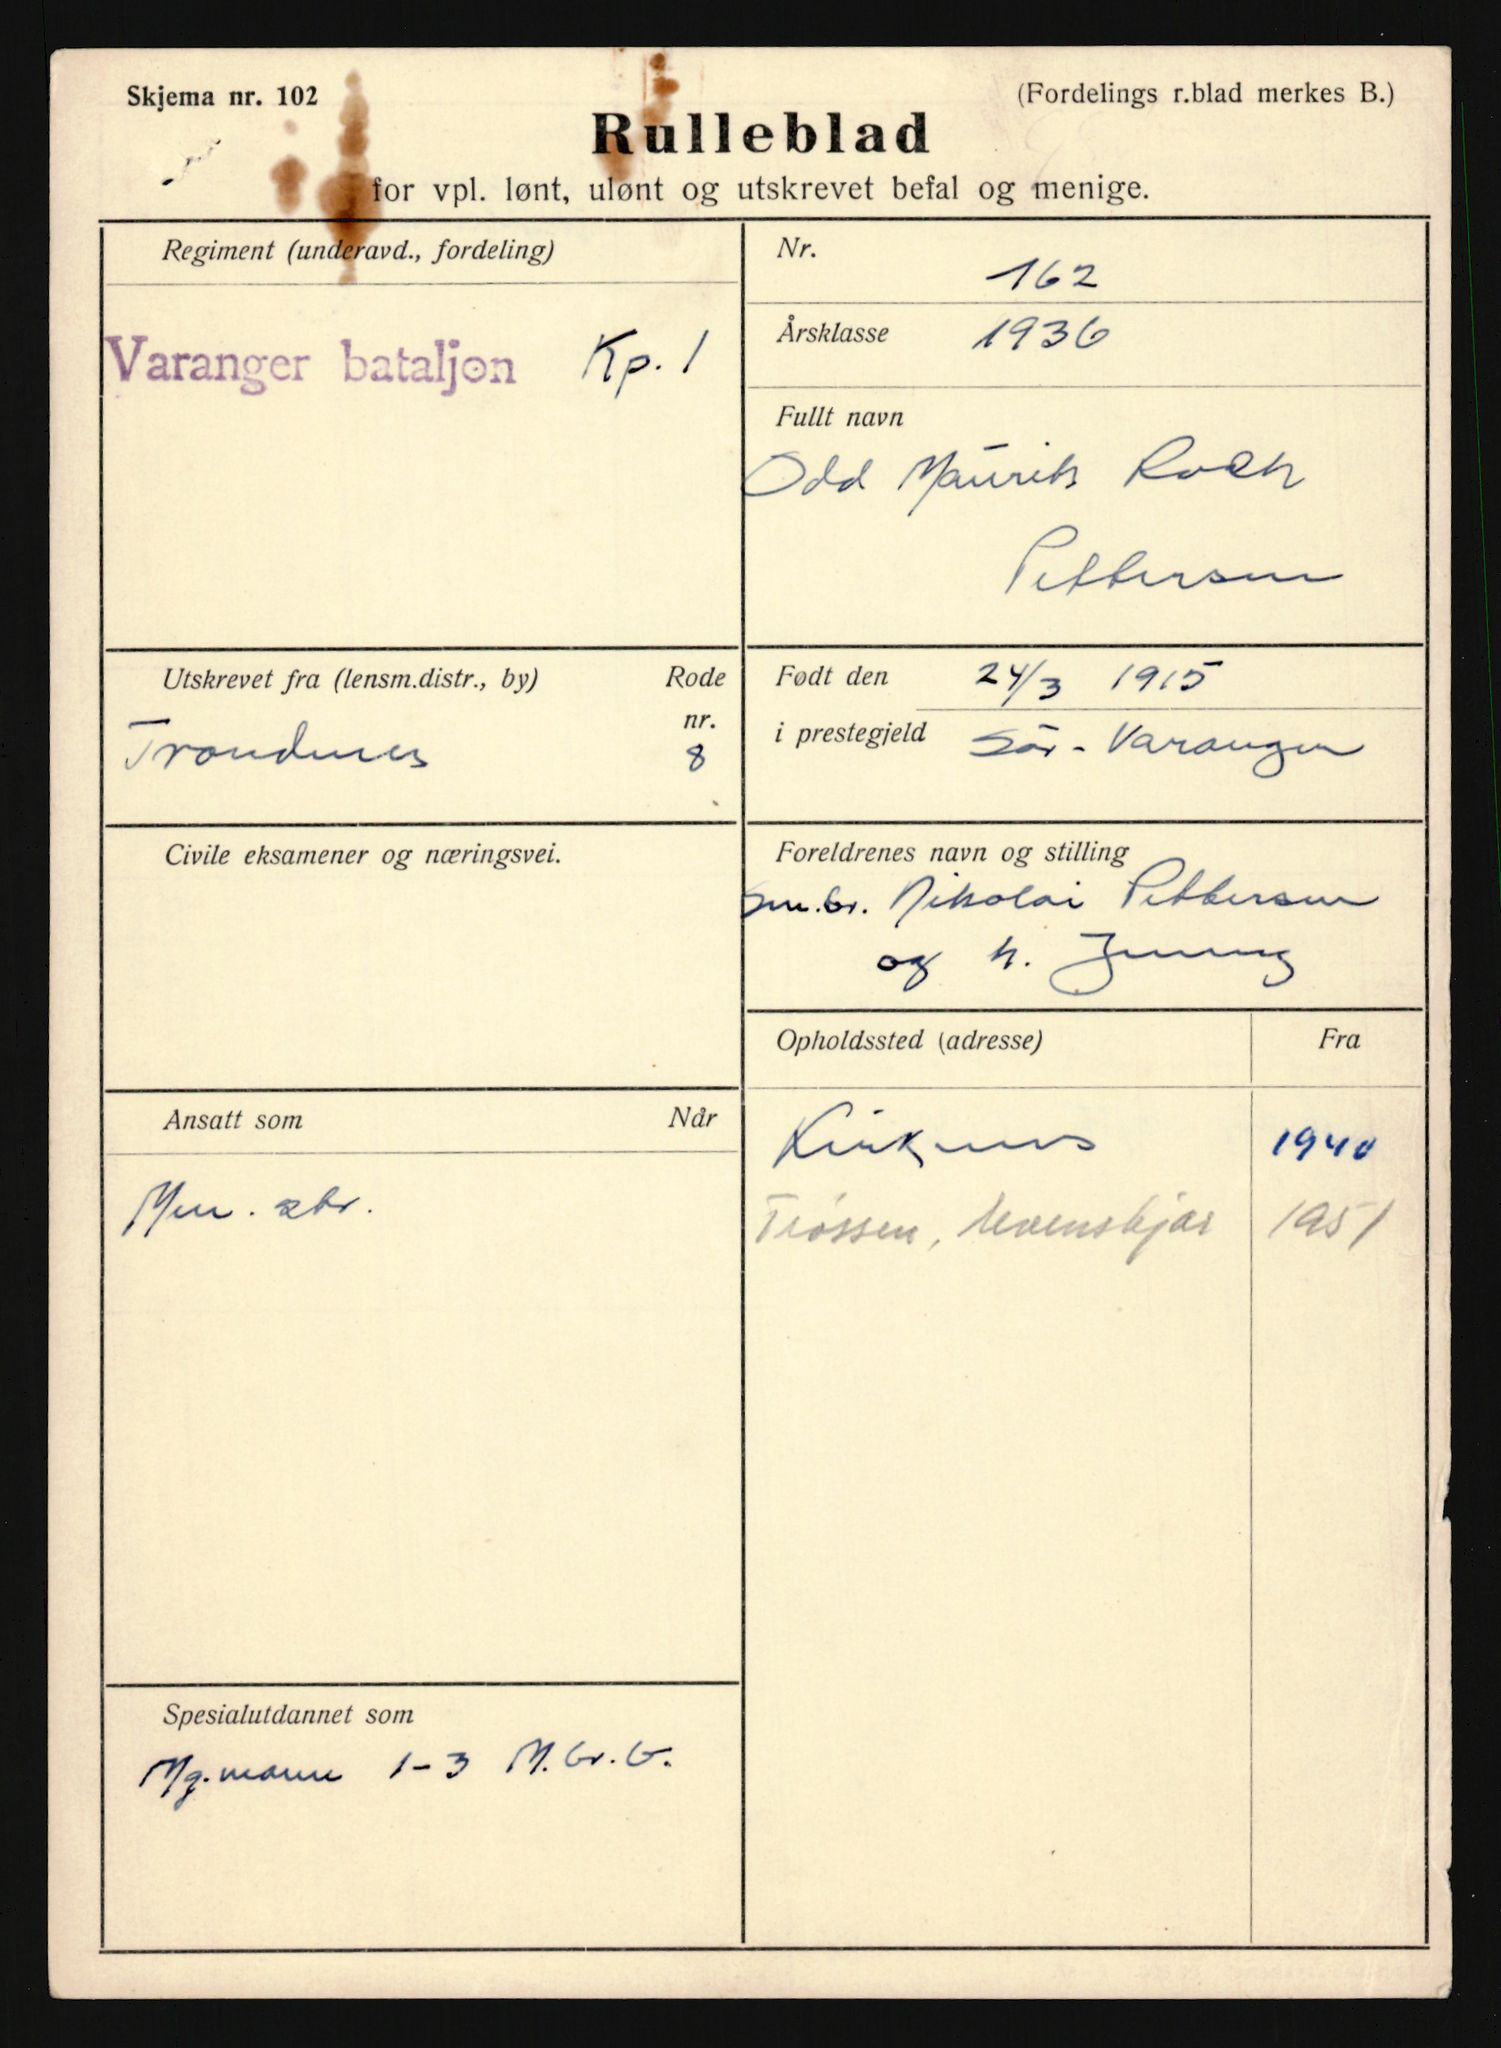 Skjema nr. 102
(Fordelings r.blad merkes B.)
Rulleblad
for vpl. lønt, ulønt og utskrevet befal og menige.
Regiment (underavd., fordeling)
Varanger bataljon Kp. 1
Nr.
162
Årsklasse 1936
Fullt navn
Odd Maurits Roch
Pettersen
Utskrevet fra (lensm.distr., by) Rode
nr.
Trondenes 8
Født den 24/3 1915
i prestegjeld Sør-Varanger
Civile eksamener og næringsvei.
Foreldrenes navn og stilling
Nikolai Pettersen
og h. Jenny
Opholdssted (adresse) Fra
Kirkenes 1940
1951
Ansatt som Når
Men. str.
Spesialutdannet som
Mg.mann 1-3 M.Gr.G.